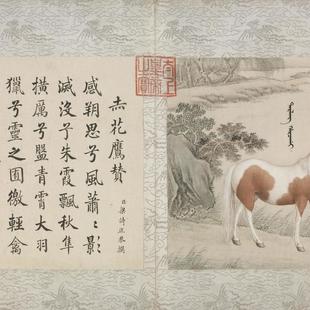 太上皇帝之寶
赤花鷹贊
臣梁詩正恭撰
感朔思兮風蕭〻影
滅沒兮朱霞飄秋隼
橫厲兮青霄大羽
獵兮靈之囿徼輕禽